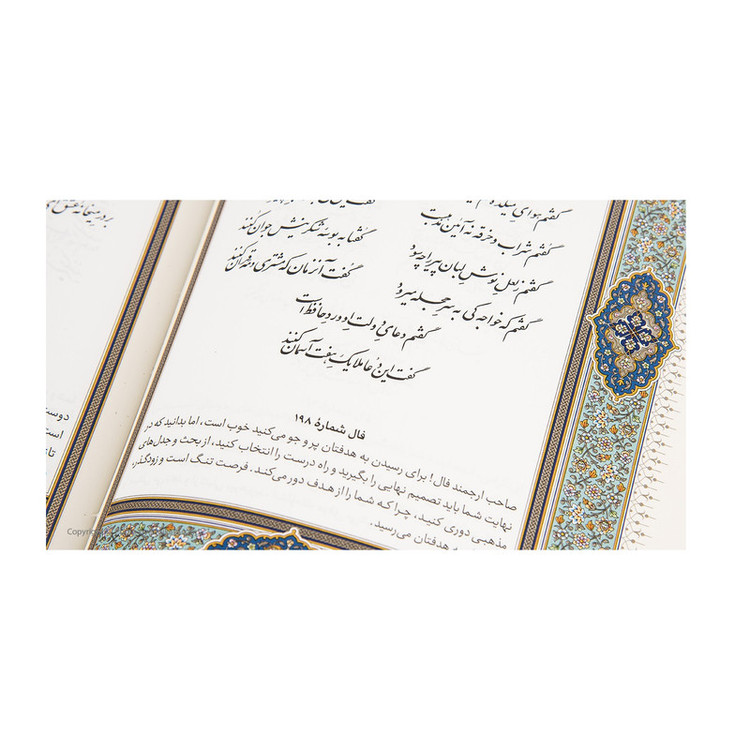 گفتم هوای میکده غم
گفتم شراب و خرقه نه آیین مذهبست
گفتم ز لعل نوش لبان پیر را چه سود
گفتا به بوسهٔ شکرینش جوان کنند
گفتم که خواجه کی به سر حجله میرود
گفت آن زمان که مشتری و مه قران کنند
گفتم دعای دولت او ورد حافظ است
گفت این دعا ملایک هفت آسمان کنند
فال شمارهٔ ۱۹۸
صاحب ارجمند فال! برای رسیدن به هدفتان پرو جو می‌کنید خوب است، اما بدانید که در
نهایت شما باید تصمیم نهایی را بگیرید و راه درست را انتخاب کنید، از بحث و جدل‌های
مذهبی دوری کنید، چرا که شما را از هدف دور می‌کند. فرصت تنگ است و زودگذر،
هدفتان می‌رسید.
بر در میخانه عشق
دوست
است
Copyright